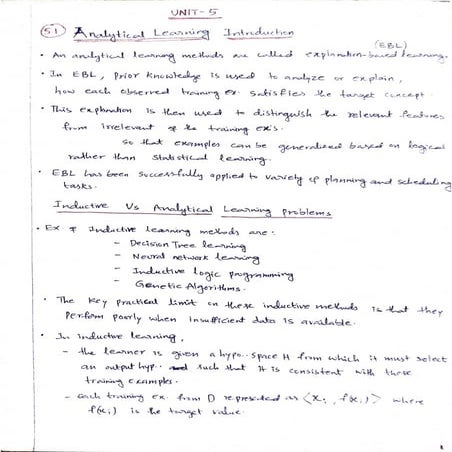 UNIT-5
5.1 Analytical Learning Introduction
(EBL)
• An analytical learning methods are called explanation-based learning.
• In EBL, prior knowledge is used to analyze or explain,
how each observed training ex. satisfies the target concept.
• This explanation is then used to distinguish the relevant features
from irrelevant of the training ex's.
so that examples can be generalized based on logical
rather than statistical learning.
• EBL has been successfully applied to variety of planning and scheduling
tasks.
Inductive Vs Analytical Learning problems
• Ex of Inductive learning methods are:
- Decision Tree learning
- Neural network learning
- Inductive logic programming
- Genetic Algorithms.
• The key practical limit on these inductive methods is that they
perform poorly when insufficient data is available.
• In inductive learning,
- the learner is given a hypo. space H from which it must select
an output hyp. such that it is consistent with these
training examples.
- each training ex. from D represented as <xi, f(xi)> where
f(xi) is the target value.
1